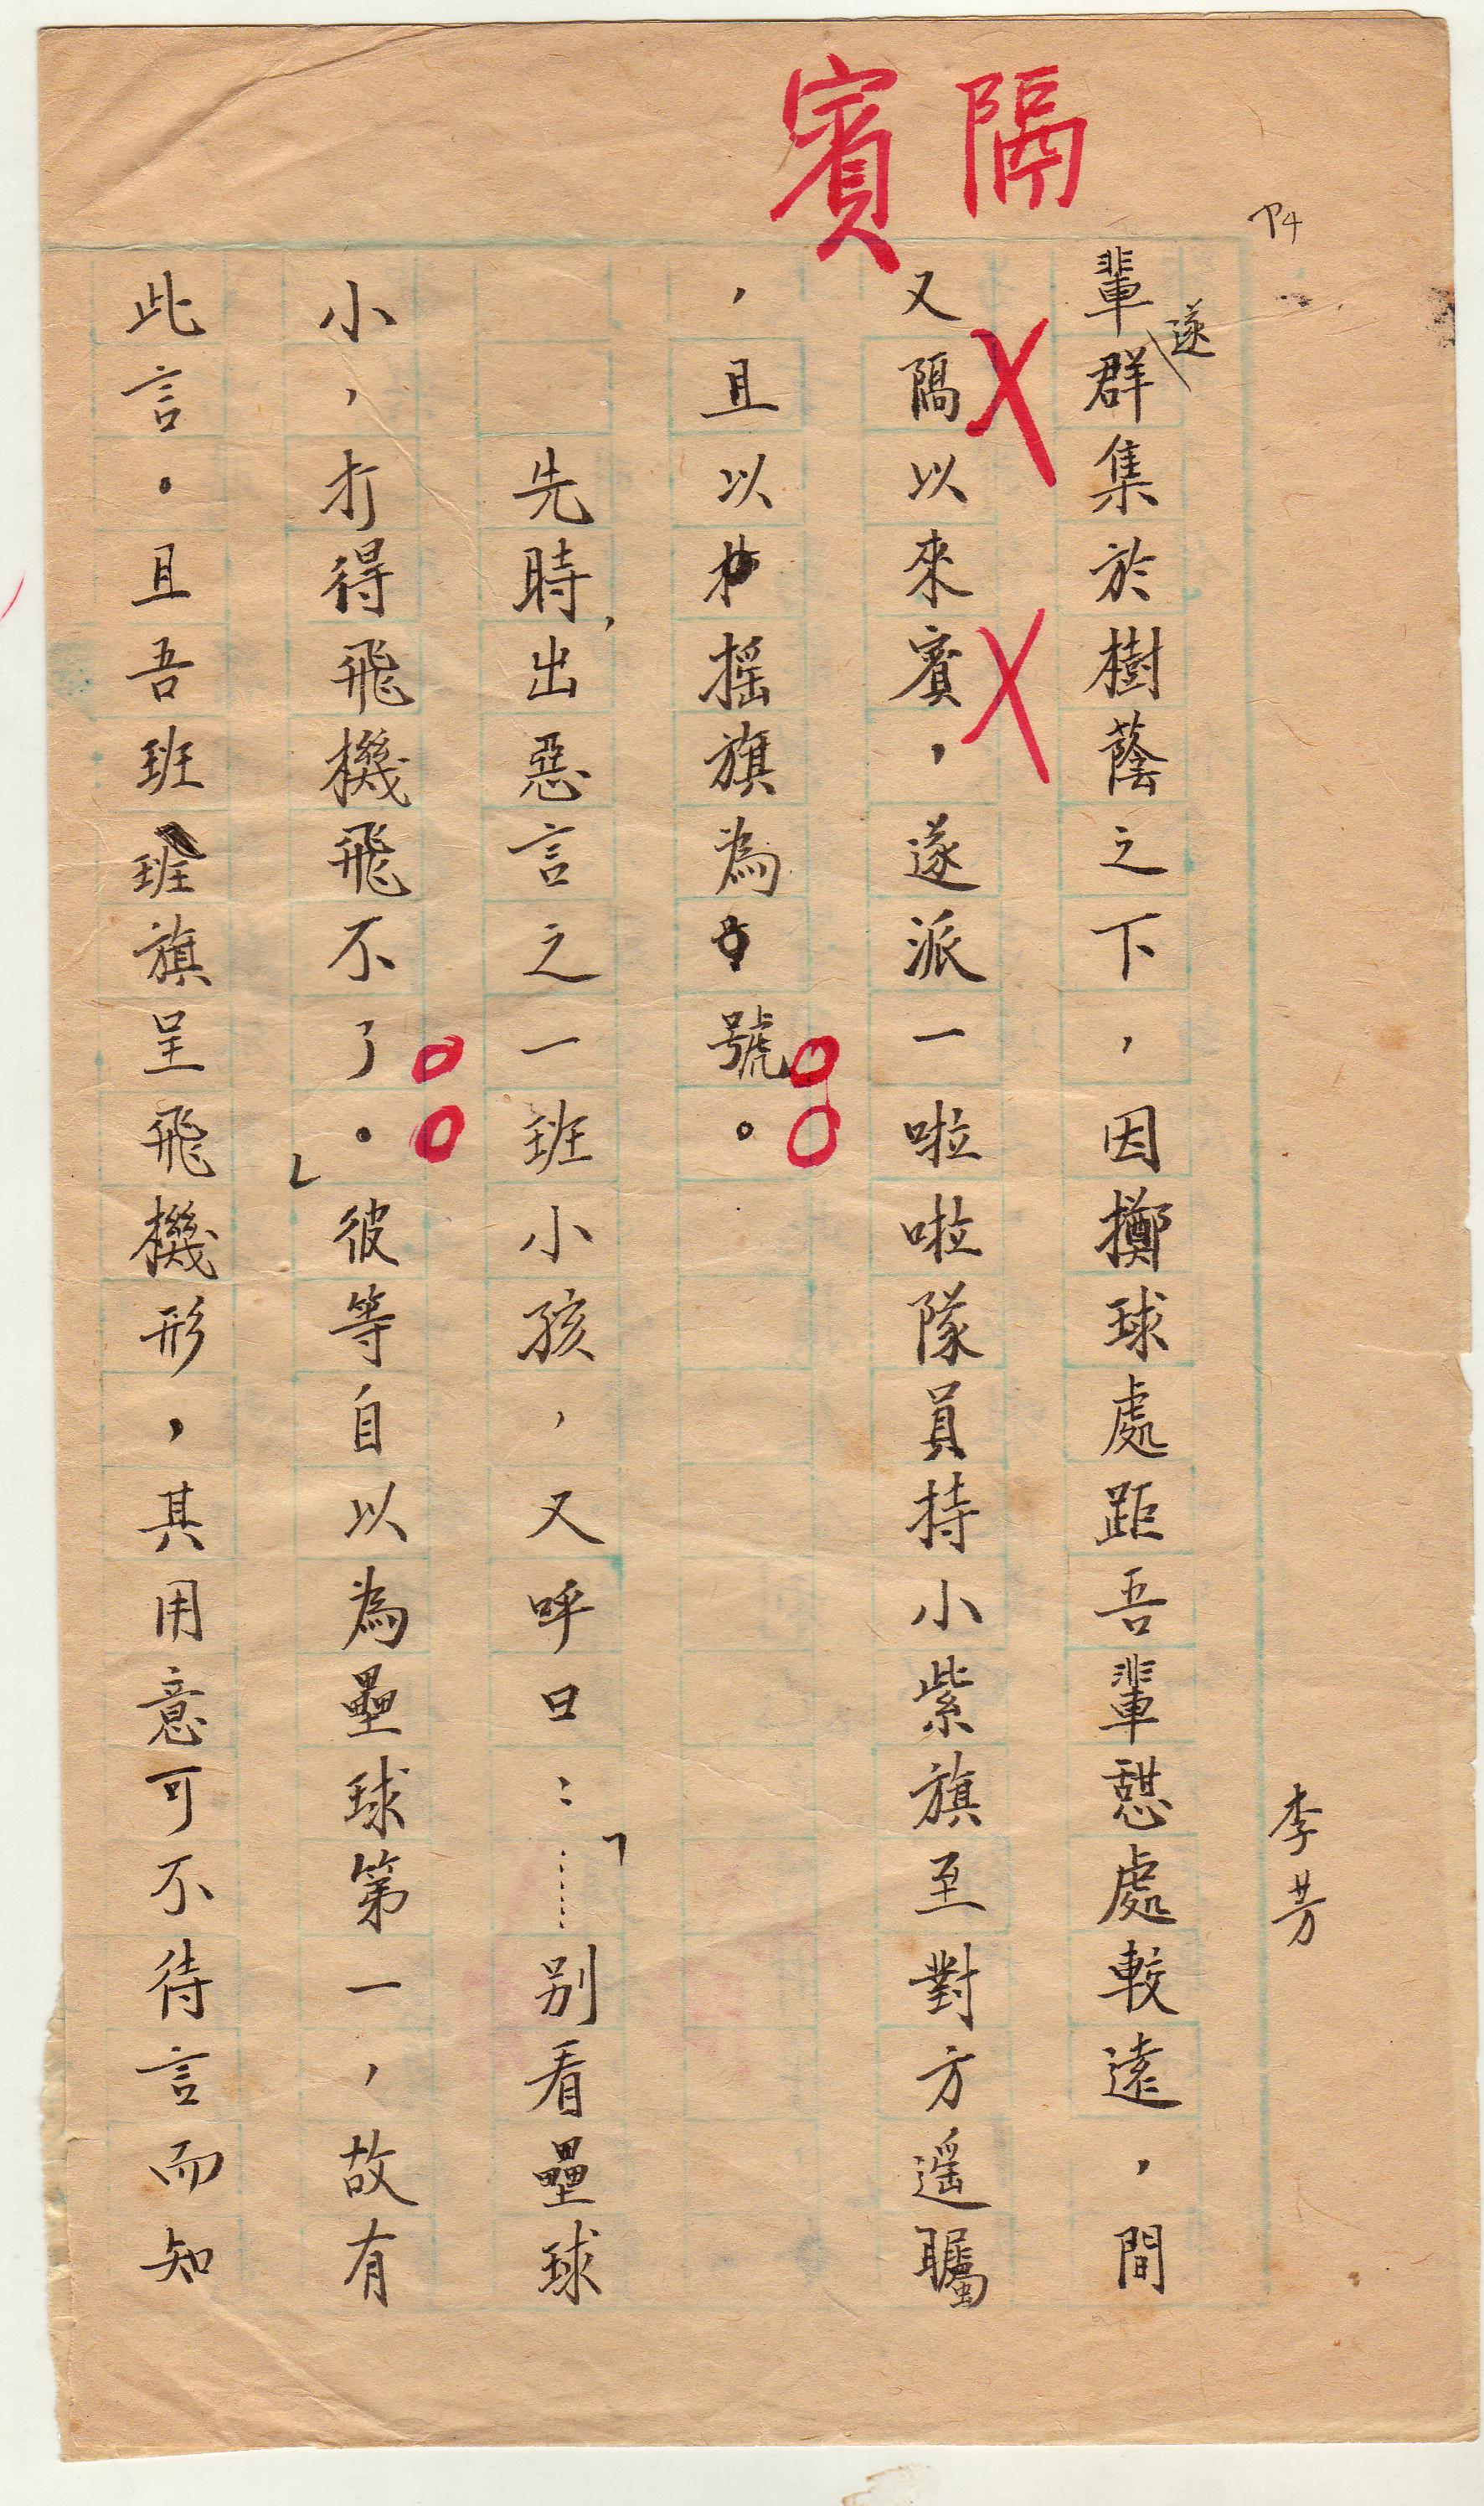 隔賓
P4
李芳
輩遂群集於樹蔭之下，因擲球處距吾輩憇處較遠，間
又隔以來賓，遂派一啦啦隊員持小紫旗至對方遥矚
，且以摇旗為號。
先時，出惡言之一班小孩，又呼曰：「……别看壘球
小，打得飛機飛不了。」彼等自以為壘球第一，故有
此言。且吾班旗呈飛機形，其用意可不待言而知